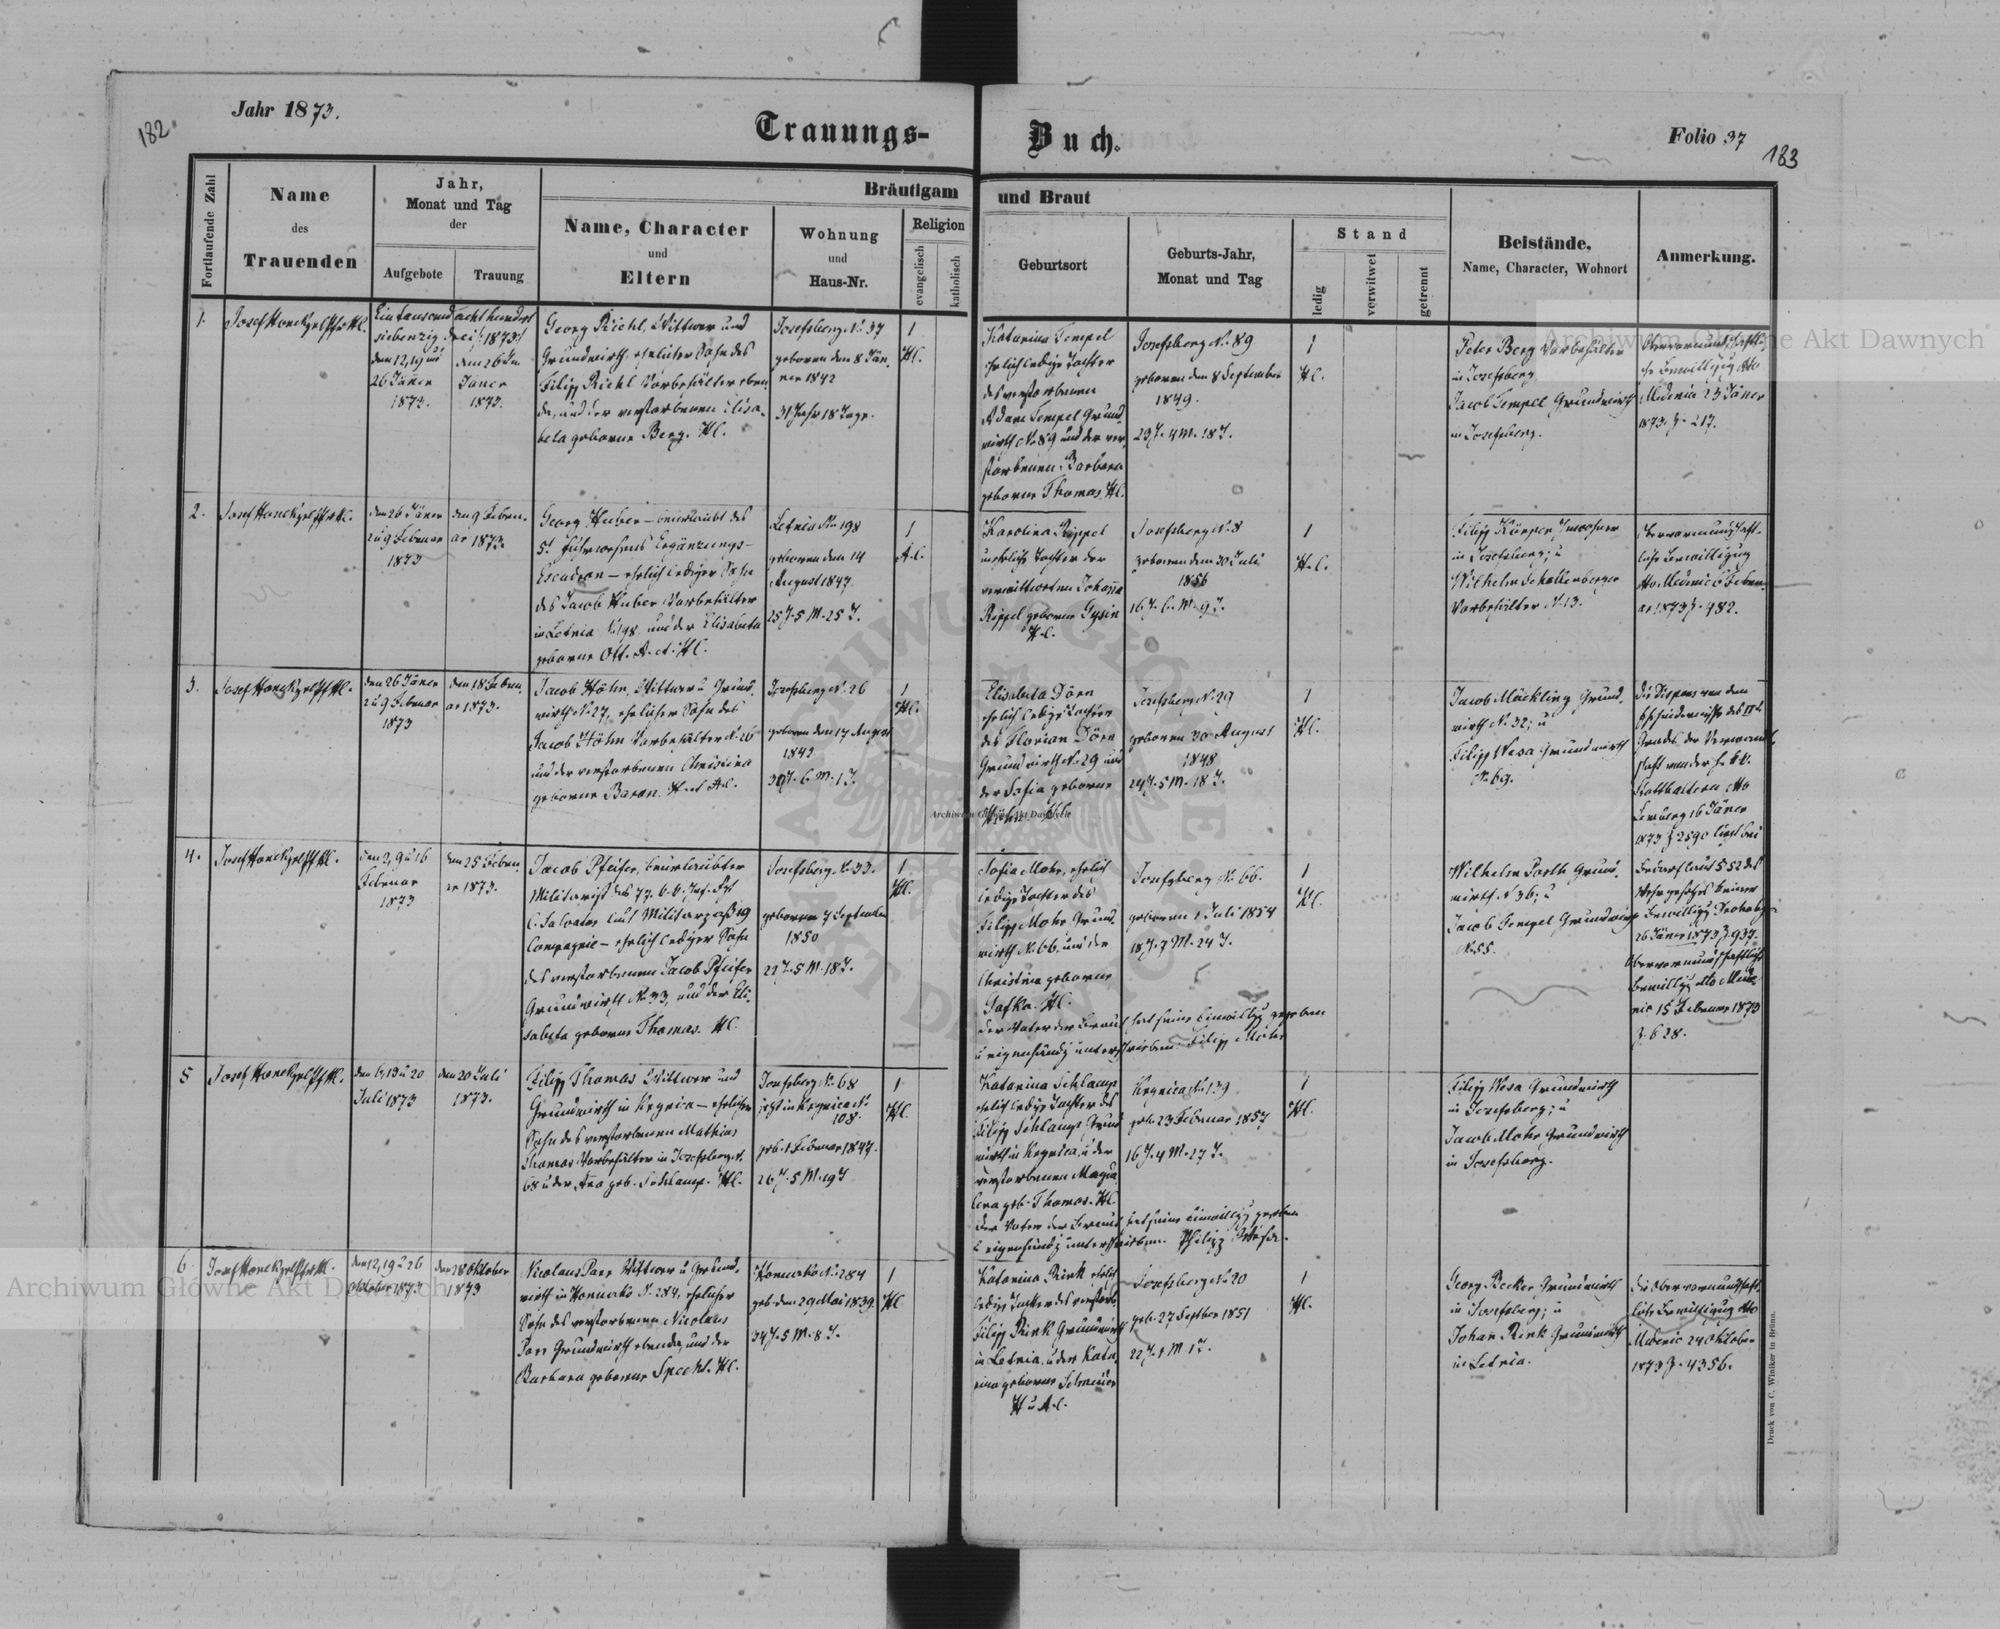 182.
Jahr 1873.
Trauungs-
Buch.
Folio 37
183
Fortlaufende Zahl
Name
des
Trauenden
Jahr,
Monat und Tag
der
Aufgebote
Trauung
Bräutigam
und Braut
Name, Character
und
Eltern
Wohnung
und
Haus-Nr.
Religion
evangelisch
katholisch
Geburtsort
Geburts-Jahr,
Monat und Tag
Stand
ledig
verwitwet
getrennt
Beistände.
Name, Character, Wohnort
Anmerkung.
1.
Eintausend achthundert
siebenzig drei /:1873:/
den 12, 19 und
26 Jäner
1873.
den 26ten
Jäner
1873.
Georg Richl, Wittwer und
Grundwirth ehelicher Sohn des
Filipp Richl Vorbehälter eben
da, und der verstorbenen Elisa-
beta geborne Berg. HC.
Josefsberg N. 37
geboren den 8 Jän-
ner 1842
31 Jahr 18 Tage.
1
HC.
Katarina Tempel
ehelich ledige Tochter
des verstorbenen
Adam Tempel Grund
wirth N. 89 und der ver-
storbenen Barbara
geborne Thomas HC.
Josefsberg N. 89
geboren den 8 September
1849.
23 J. 4 M. 18 T.
1
HC.
Peter Berg Vorbehälter
in Josefsberg
Jacob Tempel Grundwirth
in Josefsberg.
Medenic 23 Jäner
1873. Z. 217.
2.
den 26 Jäner
u 9 Februar
1873
den 9 Febru-
ar 1873.
Georg Huber – beurlaubt des
5t Fuhrwesens Ergänzungs-
Escadron – ehelich lediger Sohn
des Jacob Huber Vorbehälter
in Letnia N. 198. und der Elisabeta
geborne Ott. A. et. HC.
Letnia No 198
geboren den 14
August 1847.
25 J. 5 M. 25 T.
1
A.C.
Karolina Rippel
unehelich Tochter der
verwittweten Johanna
Rippel geborne Gysin
HC.
Josefsberg N. 8
geboren den 30 Juli
1856
16 J. 6. M. 9 T.
1
H.C.
Filipp Kürper, Inwohner
in Josefsberg; u
Wilhelm Schallenberger
Vorbehälter N. 13.
Obervormundschaft-
liche Bewilligung
dto Medenic 6 Febru-
ar 1873 Z. 482.
3.
den 26 Jäner
u 9 Februar
1873
den 18 Febru-
ar 1873.
Jacob Höhn, Wittwer u Grund-
wirth N. 27, ehelicher Sohn des
Jacob Höhn Vorbehälter N. 26
und der verstorbenen Christina
geborne Baron. H. et AC.
Josefsberg N. 26
geboren den 17 August
1842
30 J. 6. M. 1 T.
1
HC.
Elisabeta Dörn
ehelich ledige Tochter
des Florian Dörn
Grundwirth N. 29 und
der Sofia geborne
Höhn. HC.
Josefsberg N. 29
geboren 30 August
1848
24 J. 5 M. 18 T.
1
HC.
Jacob Mäckling Grund-
wirth N. 32; u
Filipp Wesa Grundwirth
N. 69.
Die Dispens von dem
Ehehindernisse des IIt
Grades der Verwandt-
schaft von der h. k.k.
Statthalterei dto
Lemberg 16 Jäner
1873 Z 2590 liegt bei
4.
den 2, 9 u 16
Februar
1873
den 25 Febru-
ar 1873.
Jacob Pfeifer, beurlaubter
Militarist des 77. k.k. Inf. Rgt
C. Salvator laut Militärpaß 19
Compagnie – ehelich lediger Sohn
des verstorbenen Jacob Pfeifer
Grundwirth N. 33, und der Eli-
sabeta geborne Thomas. HC.
Josefsberg N. 33.
geboren 7 September
1850
22 J. 5 M. 18 T.
1
HC.
Sofia Mohr, ehelich
ledige Tochter des
Filipp Mohr Grund-
wirth N. 66. und der
Christina geborne
Jafka. HC.
der Vater der Braut hat seine Einwilligg gegeben
u eigenhändig unterschrieben: Filipp Mohr
Josefsberg N. 66.
geboren 1 Juli 1854
18 J. 7 M. 24 T.
1
HC.
Wilhelm Porth Grund-
wirth N. 36; u
Jacob Tempel Grundwirth
N. 55.
Bedarf laut § 52 des
Wehrgesetzes keiner
Bewilligg Drohobycz
26 Jäner 1873 Z. 937.
Obervormundschaftliche
Bewilligg dto Mede-
nic 15 Februar 1873
Z. 628.
5
den 6, 13 u 20
Juli 1873
den 20 Juli
1873.
Filipp Thomas Wittwer und
Grundwirth in Ugerica – ehelicher
Sohn des verstorbenen Mathias
Thomas Vorbehälter in Josefsberg N.
68 u der Ana geb. Schlamp. HC.
Josefsberg N. 68
jetzt in Ugerica N.
108
geb. 1 Februar 1847.
26 J. 5 M. 19 T
1
HC.
Katarina Schlamp
ehelich ledige Tochter des
Filipp Schlamp Grund
wirth in Ugerica, u der
verstorbenen Magda
lena geb. Thomas. HC.
der Vater der Braut hat seine Einwilligg gegeben
u eigenhändig unterschrieben.
Ugerica N. 139
geb. 23 Februar 1857
16 J. 4 M. 27 T.
1
HC.
Filipp Wesa Grundwirth
in Josefsberg; u
Jacob Mohr Grundwirth
in Josefsberg.
6
den 12, 19 u 26
Oktober 1873
den 28 Oktober
1873
Nicolaus Parr Wittwer u Grund-
wirth in Horucko N. 284, ehelicher
Sohn des verstorbenen Nicolaus
Parr Grundwirth ebenda, und der
Barbara geborne Specht. HC.
Horucko N. 284
geb. den 20 Mai 1839.
34 J. 5 M. 8 T.
1
HC
Katarina Rink ehelich
ledige Tochter des verstorb.
Filipp Rink Grundwirth
in Letnia, u der Kata-
rina geborne Schneider
H u A.C.
Josefsberg N. 20
geb. 27 Septber 1851
22 J. 1 M 1 T.
1
HC.
Georg Becker Grundwirth
in Josefsberg; u
Johan Rink Grundwirth
in Letnia.
Die Obervormundschaft
liche Bewilligung dto
Medenic 24 Oktober
1873 Z. 4356.
Druck von C. Winiker in Brünn.
Archiwum Główne Akt Dawnych
Archiwum Główne Akt Dawnych
Archiwum Główne Akt Dawnych
ARCHIWUM GŁÓWNE AKT DAWNYCH